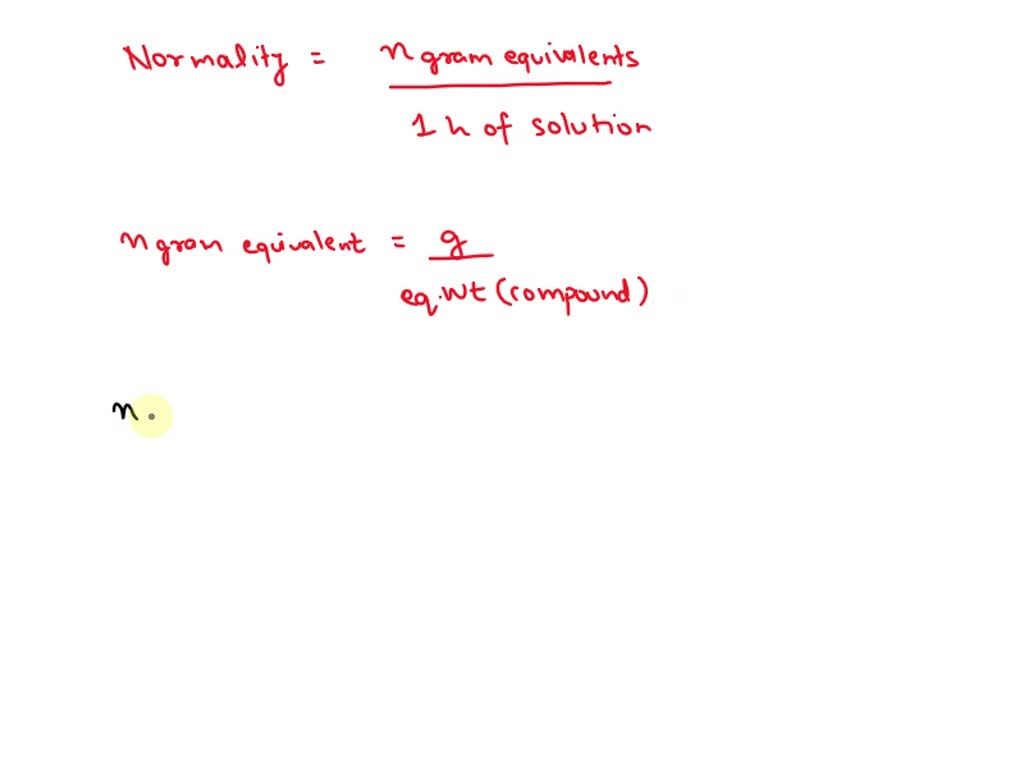 Normality = n gram equivalents
1 L of solution
n gram equivalent = g
eq.wt (compound)
n